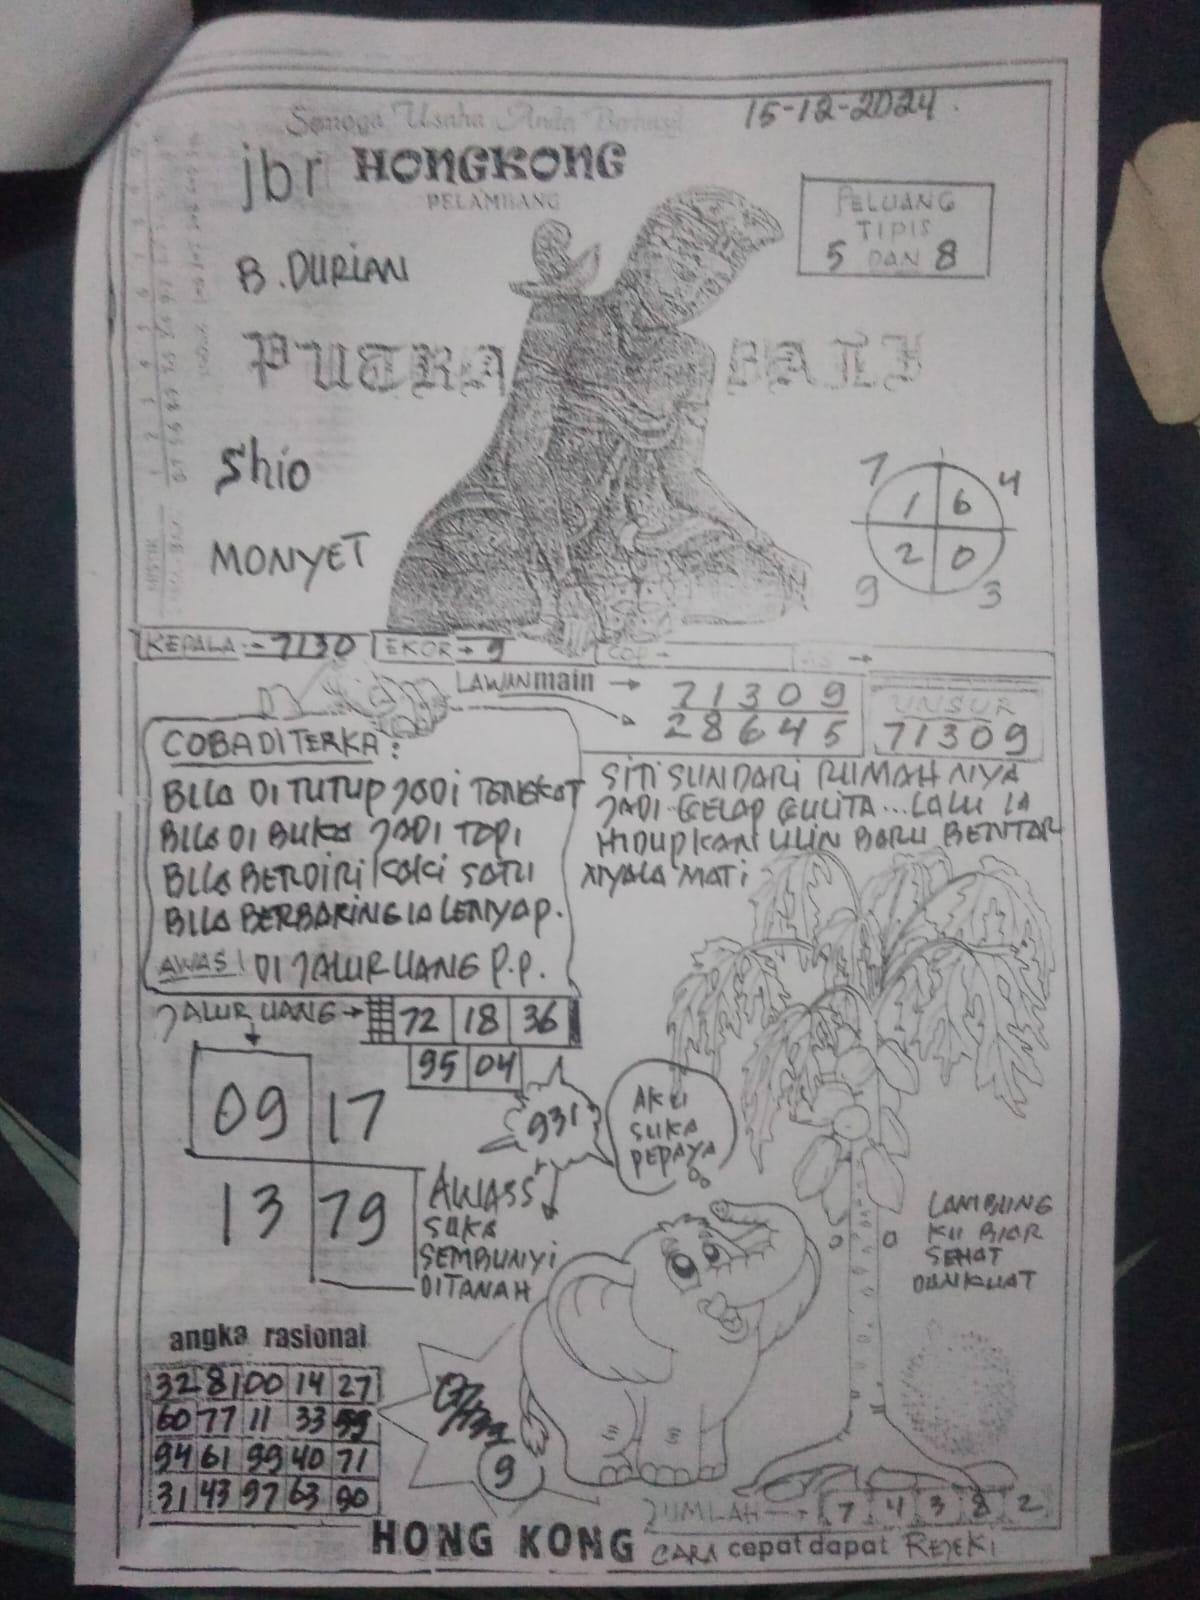 Semoga Usaha Anda Berhasil
15-12-2024.
jbr HONGKONG
PELAMBANG
PELUANG
TIPIS
5 DAN 8
B. DURIAN
PUTRA
Shio
MONYET
7 4
1 6
2 0
9 3
KEPALA :- 7130 EKOR → 9 COP →
LAWAN main → 71309
28645
UNSUR
71309
COBA DITERKA :
BILA DI TUTUP JADI TONGKAT
BILA DI BUKA JADI TOPI
BILA BERDIRI KAKI SATU
BILA BERBARING IA LENYAP.
AWAS! DI JALUR UANG P.P.
SITI SUNDARI RUMAH NYA
JADI GELAP GULITA... LALU IA
HIDUPKAN LILIN BARU BENTAR
NYALA MATI
JALUR UANG → 72 18 36
95 04
09 17
13 79
931
AKU
SUKA
PEPAYA
AWASS
SUKA
SEMBUNYI
DITANAH
LAMBUNG
KU BIAR
SEHAT
DAN KUAT
angka rasional
32 81 00 14 27
60 77 11 33 59
94 61 99 40 71
31 43 97 63 90
9
JUMLAH → 7 4 3 8 2
HONG KONG
CARA cepat dapat REJEKI